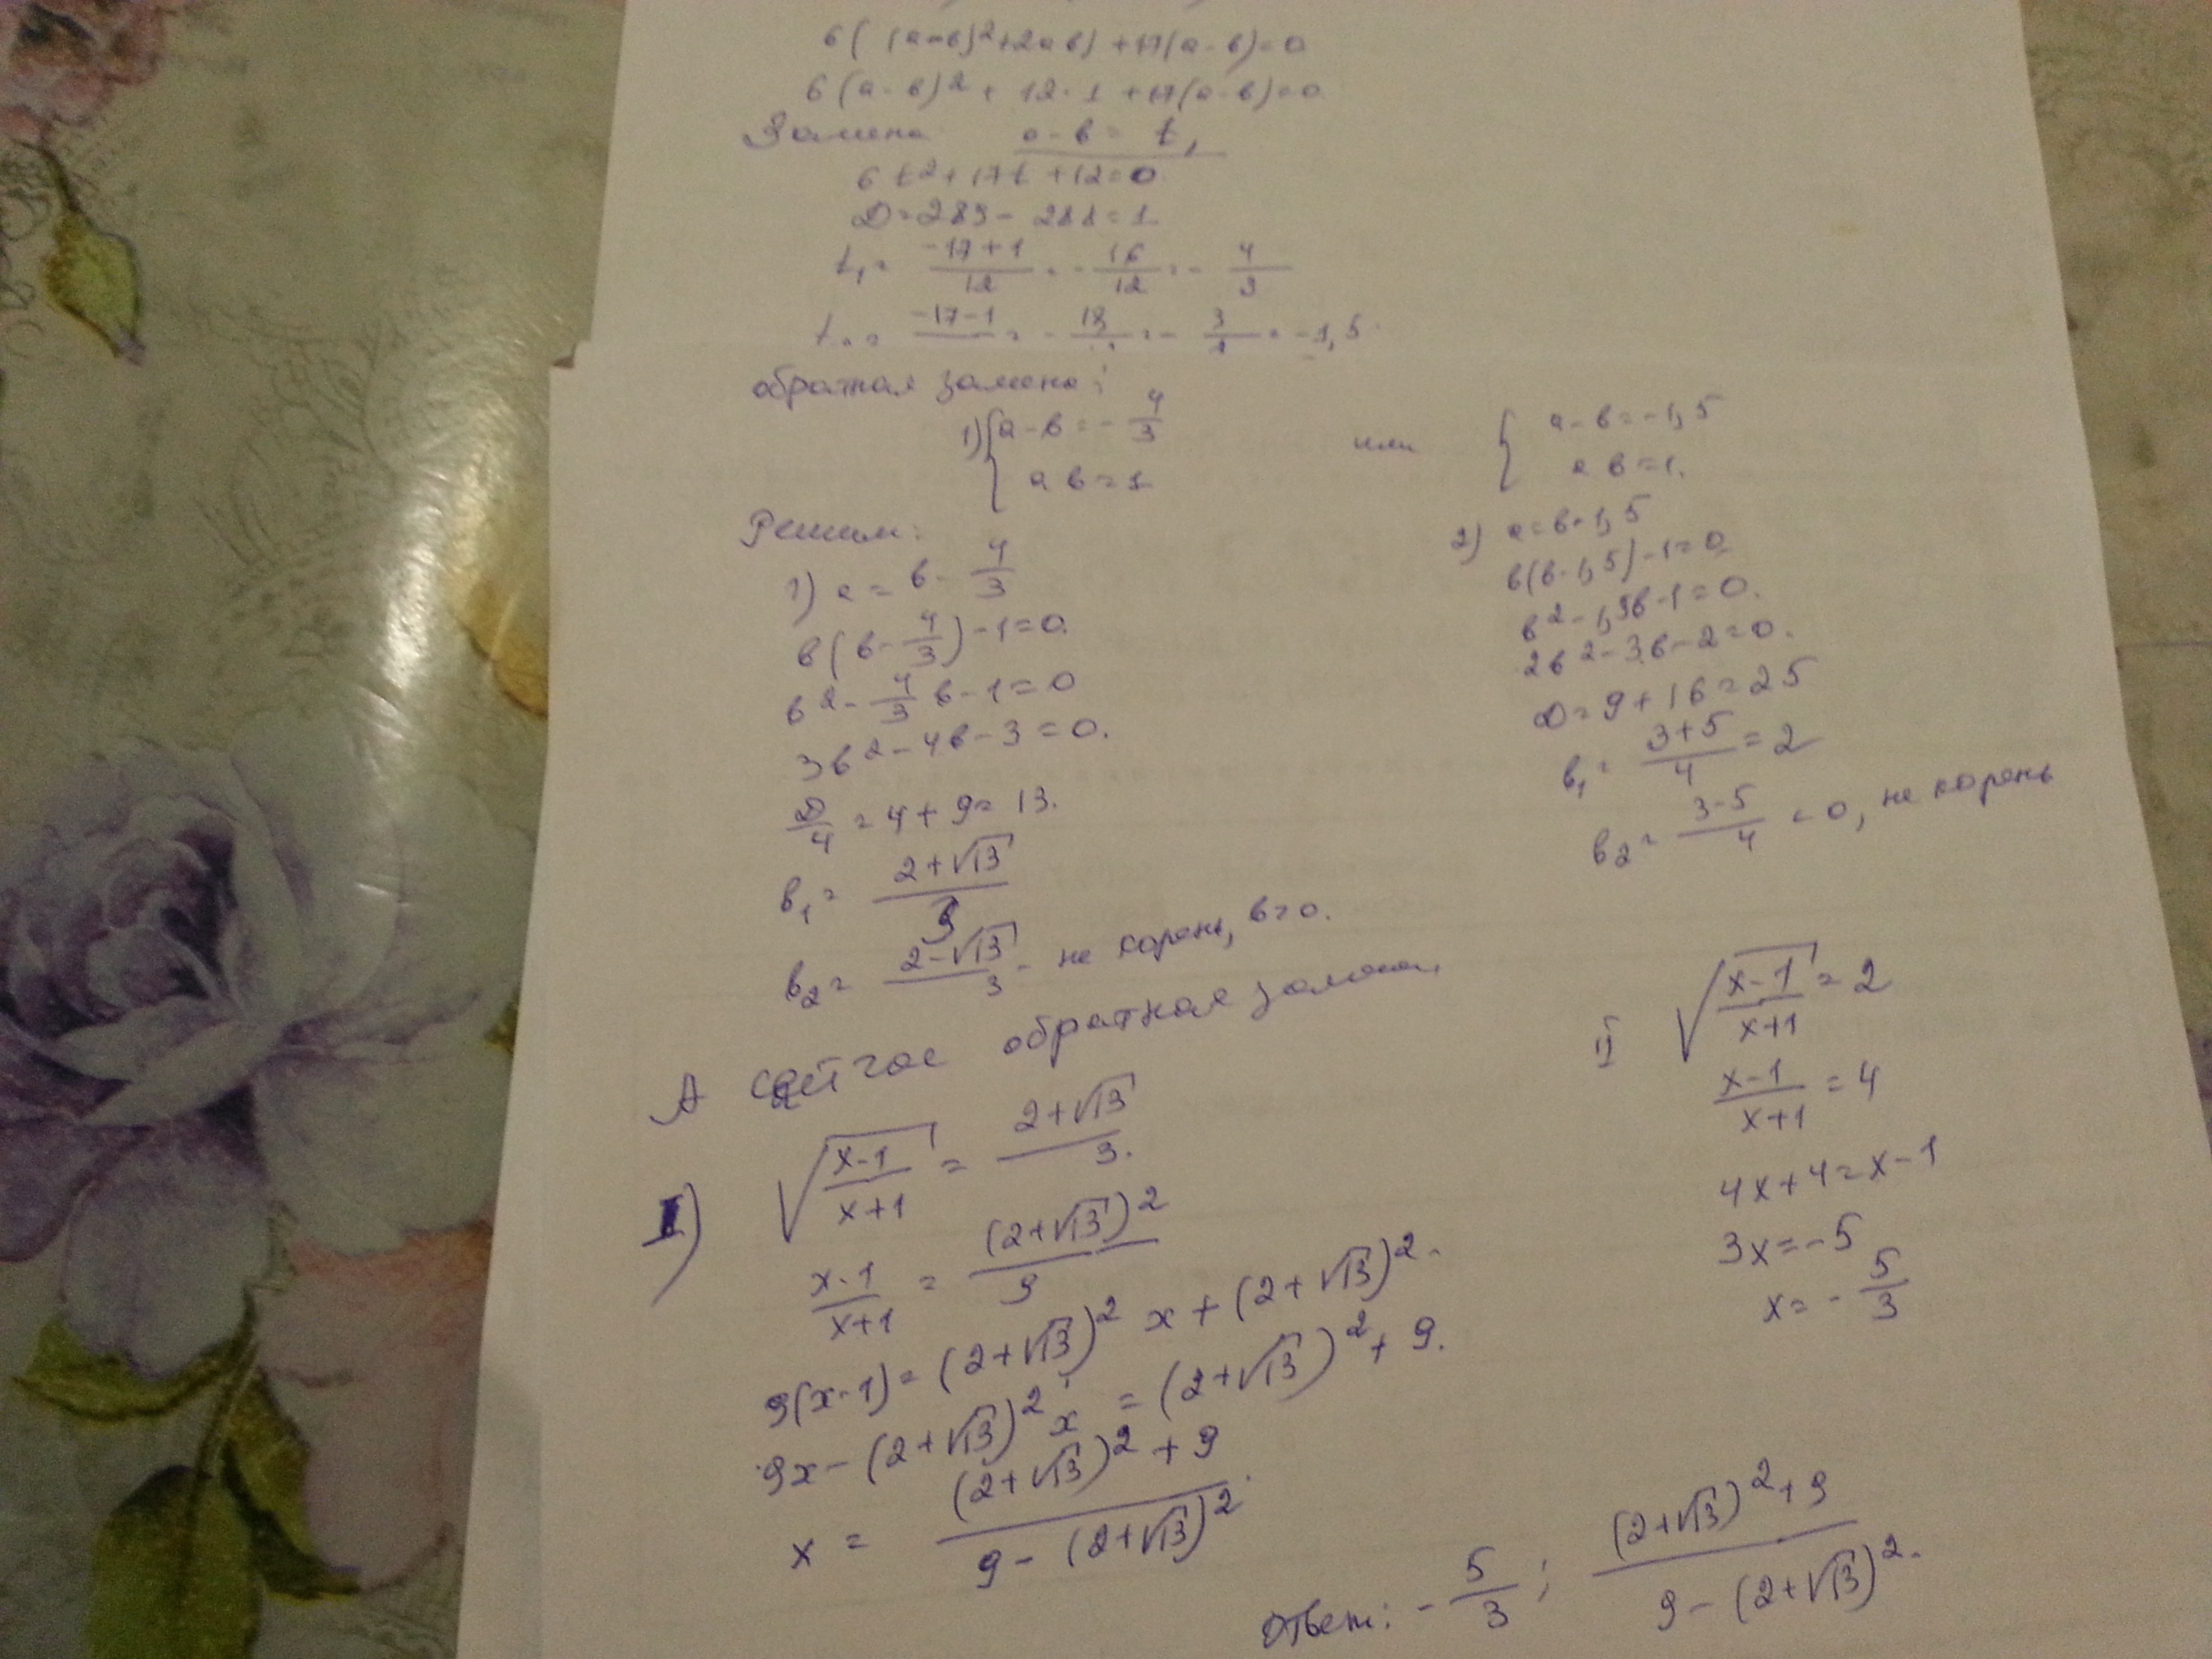 6((a-в)²+2ав)+17(a-в)=0
6(a-в)²+12·1+17(a-в)=0
Замена a-в=t,
6t²+17t+12=0
D=289-288=1
t₁=(-17+1)/12=-16/12=-4/3
(-17-1)/ = -18/ = -3/ = -1,5
обратная замена:
1) { a-в=-4/3 или { a-в=-1,5
ав=1 ав=1.
Решим:
1) a=в-4/3
в(в-4/3)-1=0.
в²-4/3в-1=0
3в²-4в-3=0.
D/4=4+9=13.
в₁=(2+√13)/3
в₂=(2-√13)/3 - не корень, в>0.
2) a=в-1,5
в(в-1,5)-1=0
в²-1,5в-1=0.
2в²-3в-2=0.
D=9+16=25
в₁=(3+5)/4=2
в₂=(3-5)/4<0, не корень
А сейчас обратная замена,
I) √((x-1)/(x+1))=(2+√13)/3.
(x-1)/(x+1)=(2+√13)²/9
9(x-1)=(2+√13)²x+(2+√13)².
9x-(2+√13)²x=(2+√13)²+9.
x=((2+√13)²+9)/(9-(2+√13)²).
II √((x-1)/(x+1))=2
(x-1)/(x+1)=4
4x+4=x-1
3x=-5
x=-5/3
Ответ: -5/3; ((2+√13)²+9)/(9-(2+√13)²).